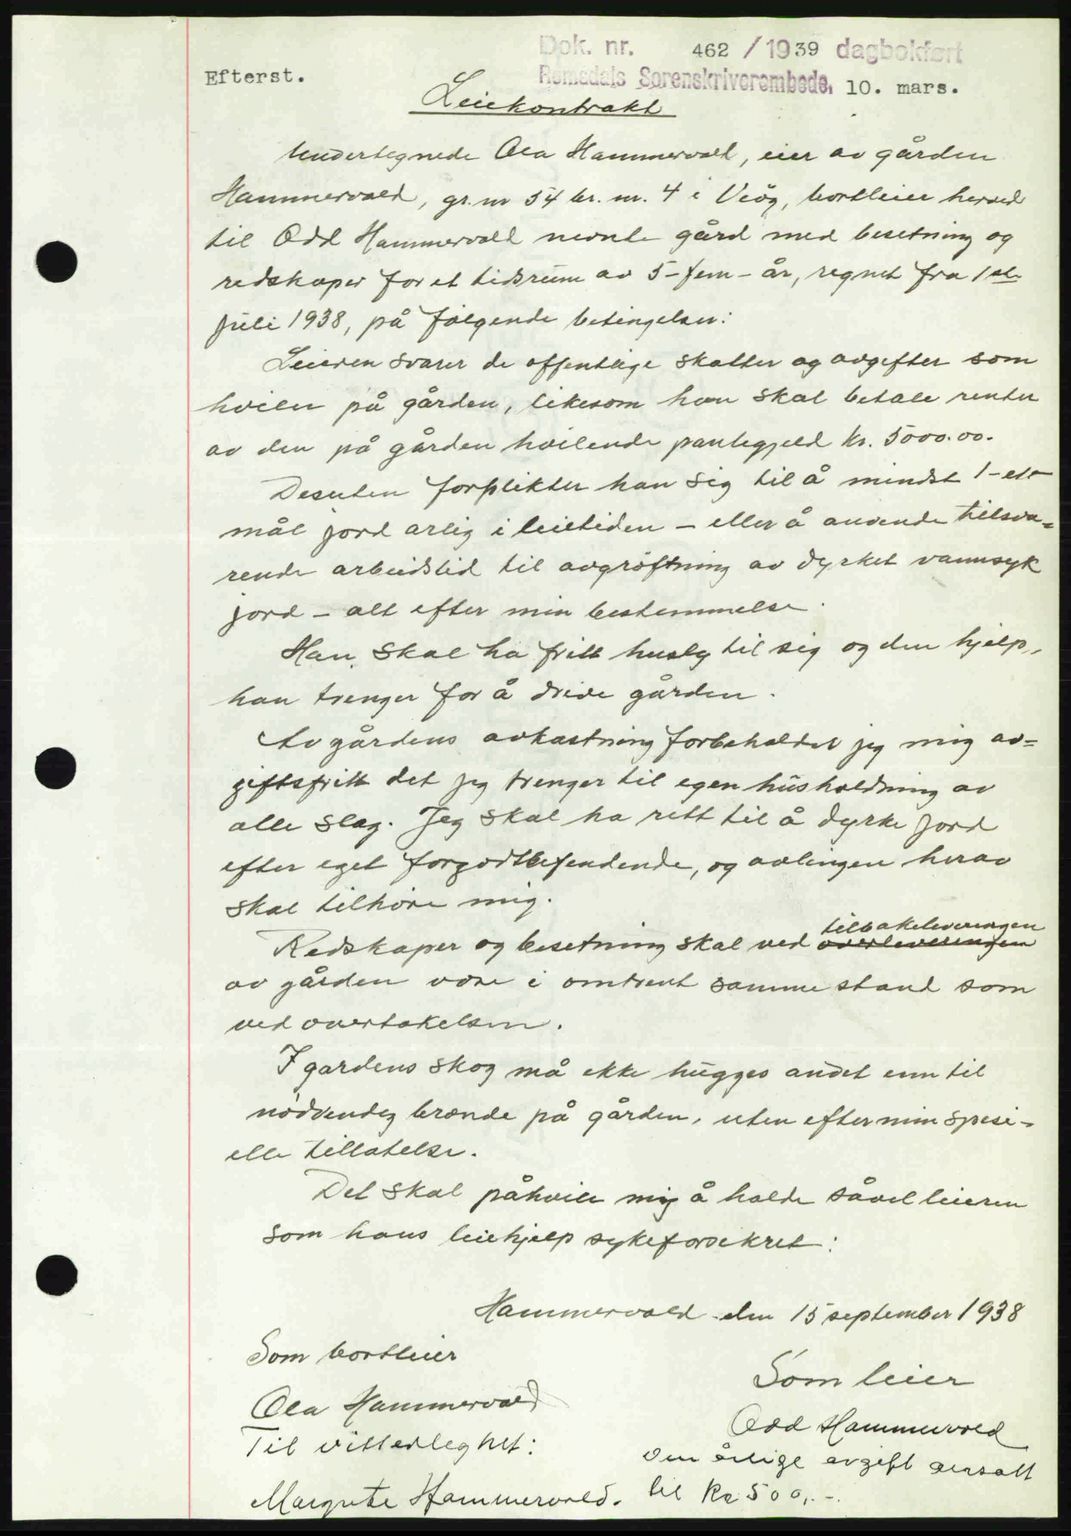 Dok. nr. 462 / 1939 dagbokført
Efterst.
Romsdals Sorenskriverembede, 10. mars.
Leiekontrakt
Undertegnede Ola Hammervold, eier av gården
Hammervold, gr. nr 54 br. nr. 4 i Veøy, bortleier herved
til Odd Hammervold nevnte gård med besetning og
redskaper for et tidsrum av 5-fem-år, regnet fra 1ste
juli 1938, på følgende betingelser:
Leieren svarer de offentlige skatter og avgifter som
hviler på gården, likesom han skal betale renter
av den på gården hvilende pantegjeld kr. 5000.00.
Desuten forplikter han sig til å mindst 1-ett
mål jord årlig i leietiden - eller å anvende tilsva=
rende arbeidstid til avgrøftning av dyrket vannsyk
jord - alt efter min bestemmelse.
Han skal ha fritt husly til sig og den hjelp,
han trenger for å drive gården.
Av gårdens avkastning forbeholder jeg mig av=
giftsfritt det jeg trenger til egen husholdning av
alle slag. Jeg skal ha rett til å dyrke jord
efter eget forgodtbefindende, og avlingen herav
skal tilhøre mig.
tilbakeleveringen
Redskaper og besetning skal ved overleveringen
av gården være i omtrent samme stand som
ved overtakelsen.
I gårdens skog må ikke hugges andet enn til
nødvendig brænde på gården, uten efter min spesi-
elle tillatelse.
Det skal påhvile mig å holde såvel leieren
som hans leiehjelp sykeforsikret:
Hammervold den 15 september 1938
Som bortleier
Som leier
Ola Hammervold
Odd Hammervold
Til vitterleghet:
Den årlige avgift ansatt
Margrete Hammervold.
til Kr 500,-.